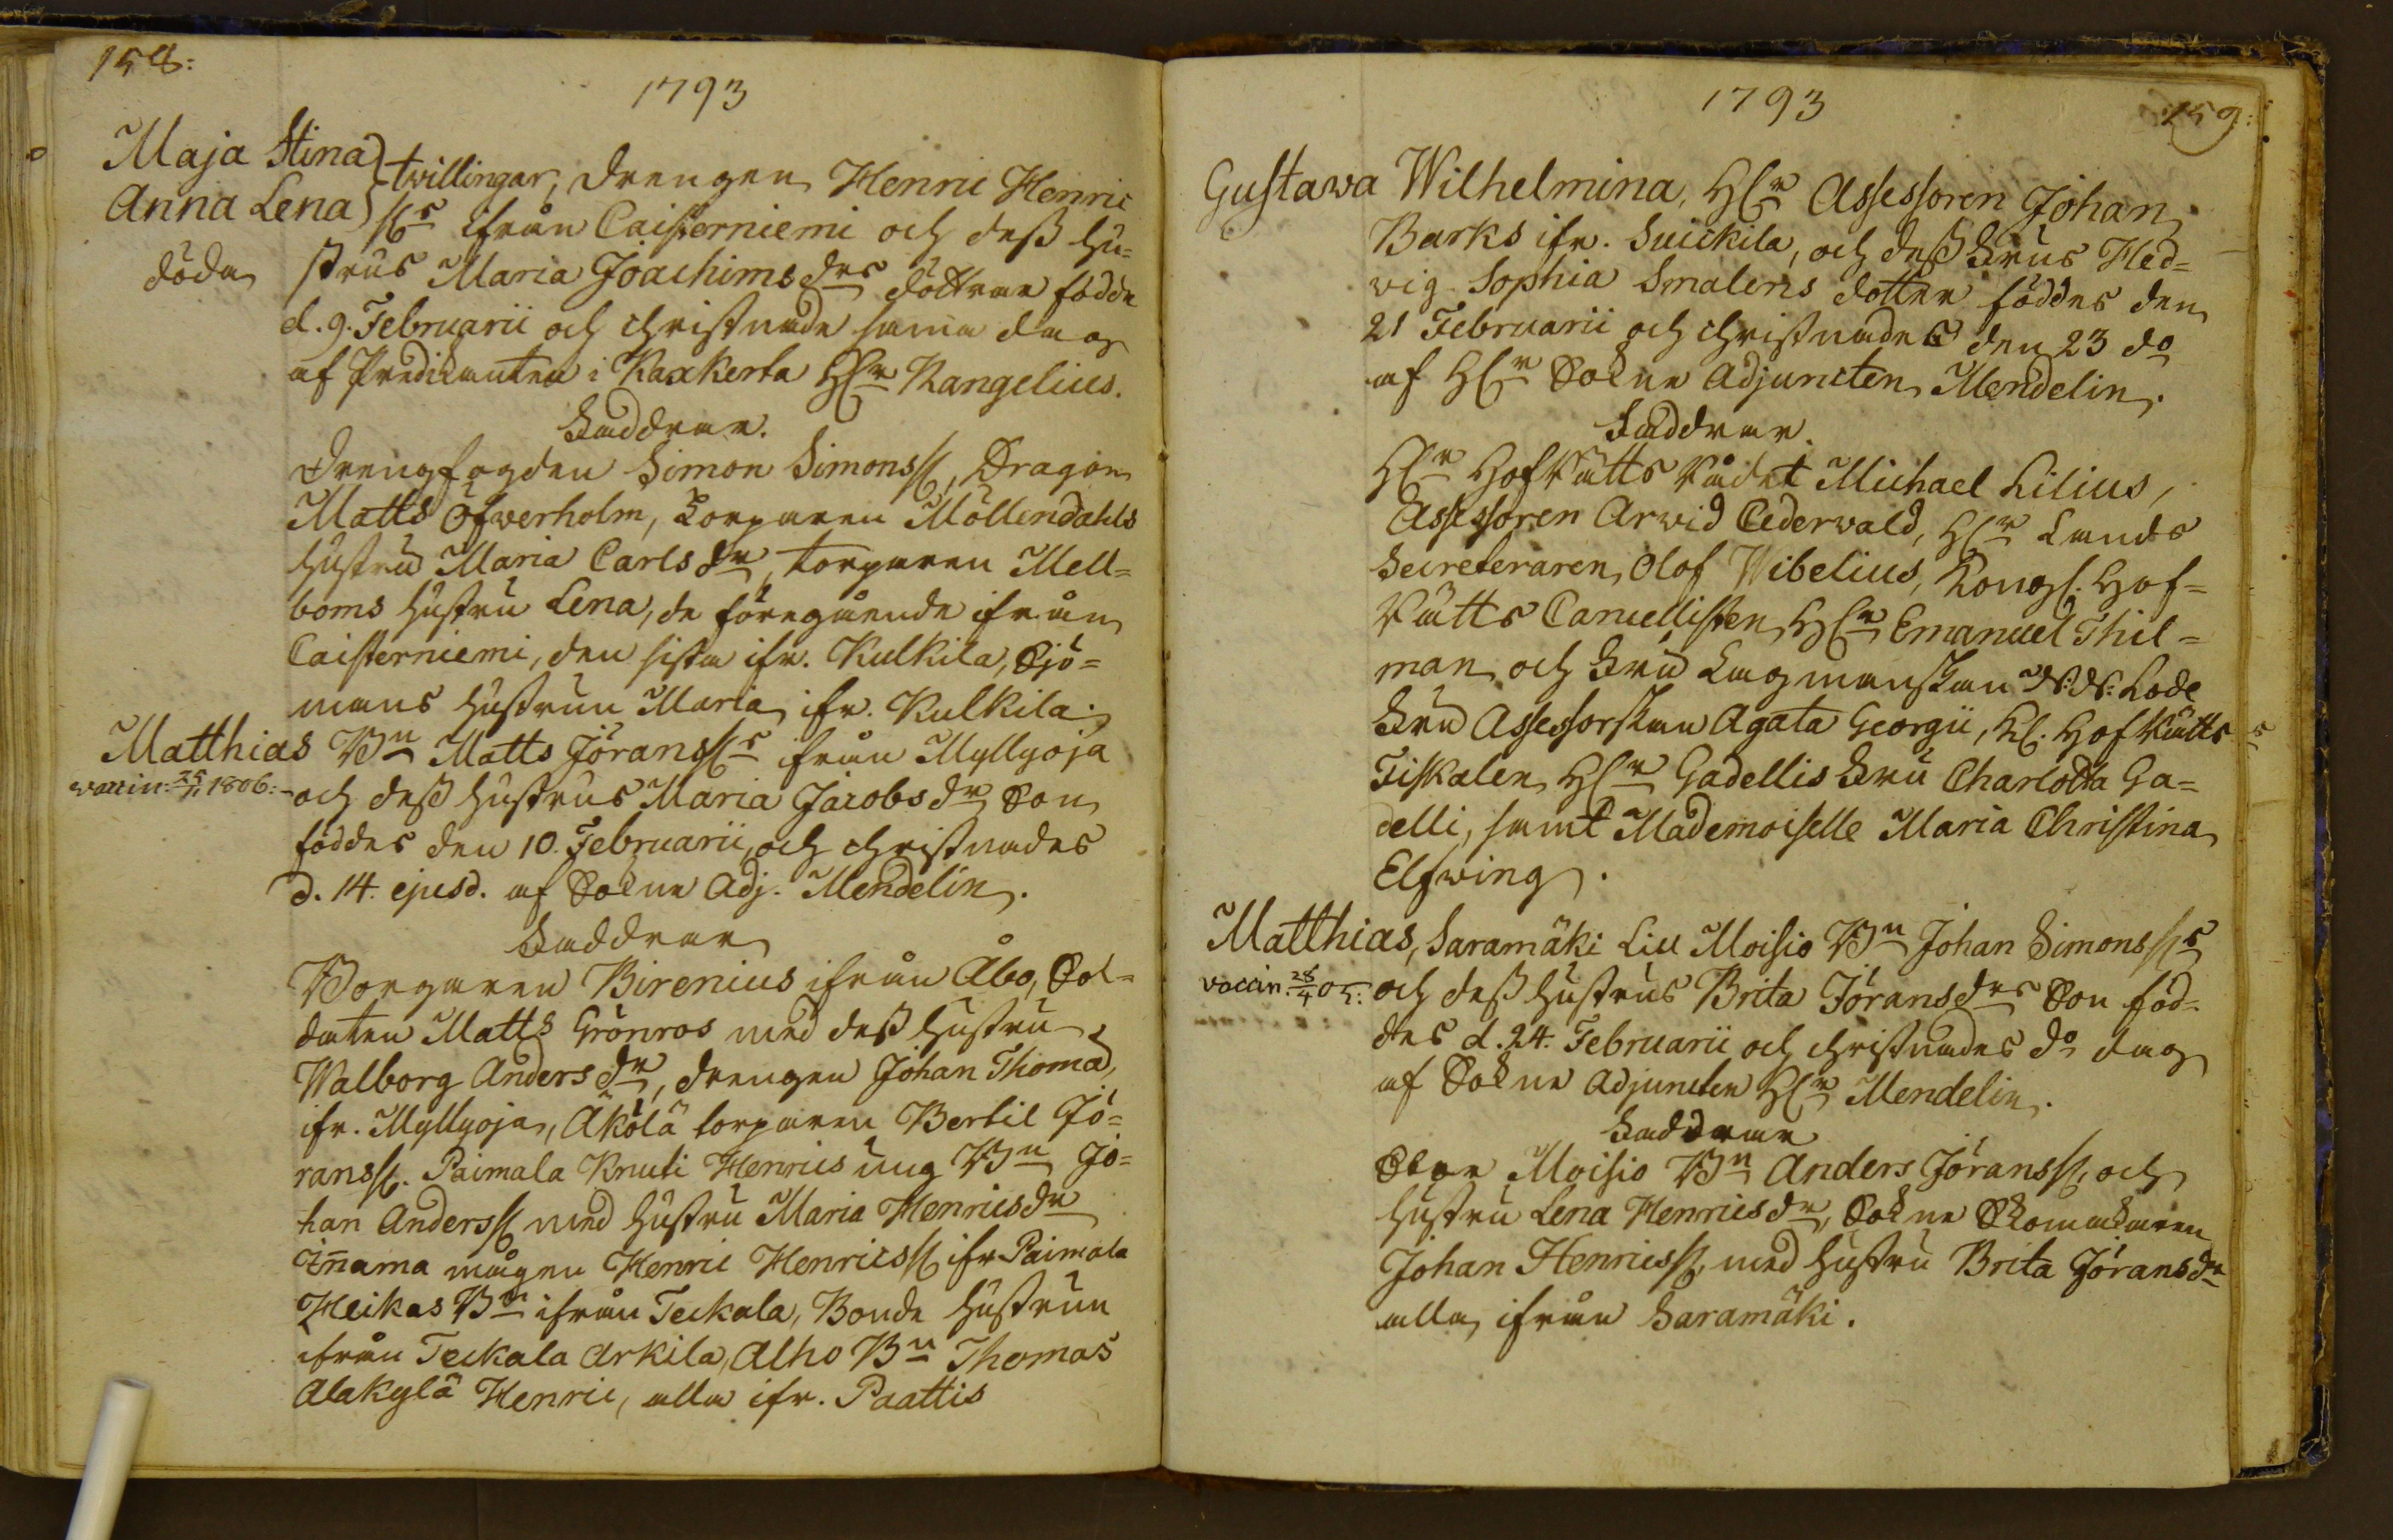 158:
1793
Maja Stina
Anna Lena
döda
twillingar, Drengen Henric Henric
ss:s ifrån Caisterniemi och dess hu=
strus Maria Joachims drs döttrar födde
d. 9. Februarii och christnade samma dag
af Predicanten i Kaxkerta H:r Rangelius.
Faddrar.
Drengfogden Simon Simonss:, Dragon
Matts Öfwerholm, Torparen Möllendahls
hustru Maria Carls dr, torparen Mell=
boms hustru Lena, de föregående ifrån
Caisterniemi, den sista ifr. Kulkila, Sjö=
mans hustrun Maria ifr. Kulkila.
Matthias Bn Matts Jöranss:s ifrån Myllyoja
vaccin: 25/11 1806:
och dess hustrus Maria Jacobs dr Son
föddes den 10. Februarii, och christnades
d. 14. ejusd. af Sokne Adj. Mendelin.
Faddrar
Borgaren Birenius ifrån Åbo, Sol=
daten Matts Grönros med dess hustru
Walborg Anders dr, drengen Johan Thomæ,
ifr. Myllyoja, Äkölä torparen Bertil Jö=
ranss:. Paimala Knuti Henrics ung Bn Jo=
han Anderss: med hustru Maria Henrics dr
Iñama mågen Henric Henricss: ifr Paimala
Heikas Bn ifrån Teckala, Bonde hustrun
ifrån Teckala Arkila, Alho Bn Thomas
Alakylä Henric, alla ifr. Paattis
1793
159:
Gustawa Wilhelmina, H:r Assessoren Johan
Barks ifr. Suickila, och dess Frus Hed=
wig Sophia Smalens dotter föddes den
21 Februarii och christnades den 23 do
af H:r Sokne Adjuncten Mendelin.
Faddrar.
H:r HofRätts Rådet Michael Lilius,
Assessoren Arwid Cederwald, H:r Lands
Secreteraren Olof Wibelius, Kongl. Hof=
Rätts Cancellisten H:r Emanuel Thil=
man och Fru Lagmanskan Lode
Fru Assessorskan Agata Georgii, Kl. HofRätts
Fiskalen H:r Gadellis Fru Charlotta Ga=
delli, samt Mademoiselle Maria Christina
Elfwing.
Matthias, Saramäki Lill Moisio Bn Johan Simonss:s
vaccin. 28/4 05:
och dess hustrus Brita Jörans drs Son föd=
des d. 24. Februarii och christnades do dag
af Sokne Adjuncten H:r Mendelin.
Faddrar
Stor Moisio Bn Anders Jöranss:, och
hustru Lena Henrics dr, Sokne Skomakaren
Johan Henricss:, med hustru Brita Jörans dr
alla ifrån Saramäki.